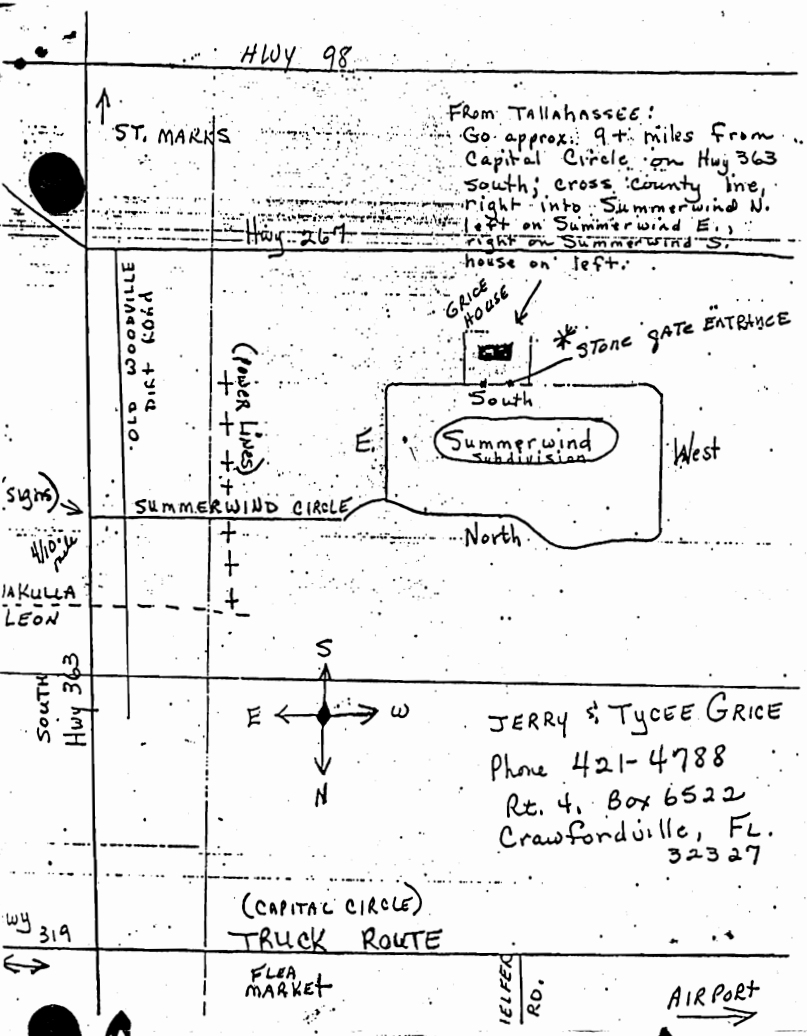 HWY 98
ST. MARKS
FROM TALLAHASSEE:
Go approx. 9+ miles from
Capital Circle on Hwy 363
South; cross county line,
right into Summerwind N.
left on Summerwind E.,
right on Summerwind S.
house on left.
Hwy 267
OLD WOODVILLE
DIRT ROAD
(POWER LINES)
GRICE
HOUSE
* STONE GATE ENTRANCE
South
E.
Summerwind
Subdivision
West
North
signs)
SUMMERWIND CIRCLE
4/10 mile
AKULLA
LEON
SOUTH
Hwy 363
S
E
W
N
JERRY & TYCEE GRICE
Phone 421-4788
Rt. 4, Box 6522
Crawfordville, FL.
32327
(CAPITAL CIRCLE)
TRUCK ROUTE
wy 319
FLEA
MARKET
IELFER
RD.
AIRPORT